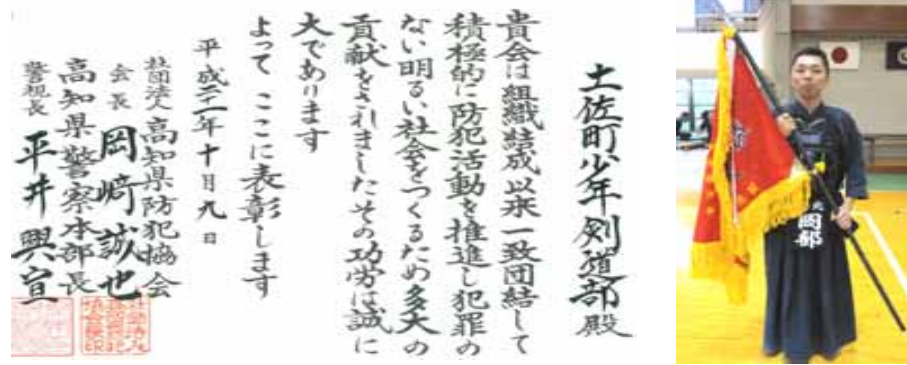 土佐町少年剣道部殿
貴会は組織結成以来一致団結して
積極的に防犯活動を推進し犯罪の
ない明るい社会をつくるため多大の
貢献をされましたその功労は誠に
大であります
よって ここに表彰します
平成二一年十月九日
社団法人高知県防犯協会
会長 岡﨑誠也
高知県警察本部長
警視長 平井興宣
岡部